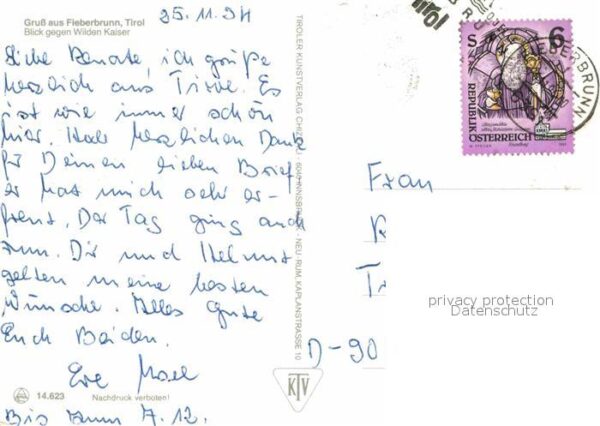 25.11.94
Gruß aus Fieberbrunn, Tirol
Blick gegen Wilden Kaiser
Liebe Renate, ich grüße
herzlich aus Tirol. Es
ist wie immer schön
hier. Habe herzlichen Dank
für Deinen lieben Brief
er hat mich sehr er-
freut. Der Tag ging auch
rum. Dir und Helmut
gelten meine besten
Wünsche. Alles Gute
Euch Beiden.
Eve
14.623
Nachdruck verboten!
Bis zum 7.12.
TIROLER KUNSTVERLAG CHIZZALI · 6040 INNSBRUCK - NEU RUM, KAPLANSTRASSE 10
KTV
Tirol
S 6
REPUBLIK
ÖSTERREICH
FIEBERBRUNN
Frau
D-90
privacy protection
Datenschutz